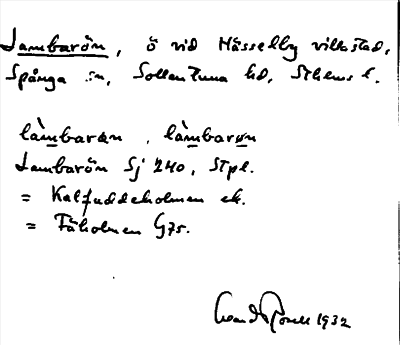 Lambarön, ö vid Hässelby villastad,
Spånga sn, Sollentuna hd, Sthms l.
làmbaran, làmbarøn
Lambarön Sj 240, Stpl.
= Kalfuddeholmen ek.
= Fåholmen G75.
1932